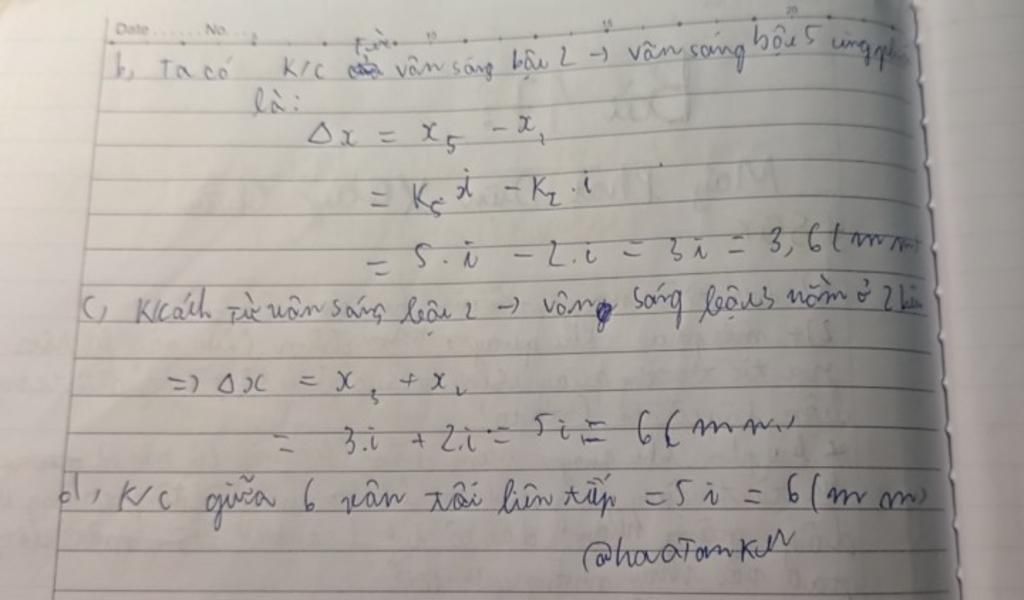 Date ....... No. ..
10 15 20
b, Ta có K/c từ vân sáng bậc 2 → vân sáng bậc 5 cùng phía
là:
Δx = x₅ - x₂
= K₅ i - K₂ . i
= 5 . i - 2 . i = 3i = 3,6 (mm)
c, K/cách từ vân sáng bậc 2 → vâng sáng bậc 3 nằm ở 2 bên
=> Δx = x₃ + x₂
= 3.i + 2.i = 5i = 6 (mm)
d, K/c giữa 6 vân tối liên tiếp = 5i = 6 (mm)